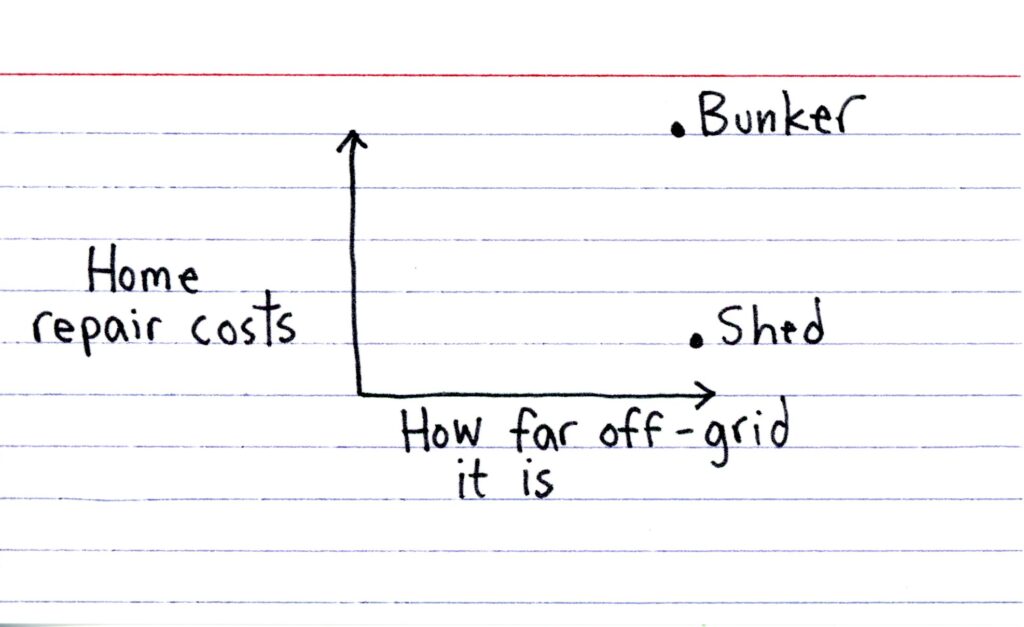 Bunker
Home
repair costs
Shed
How far off-grid
it is